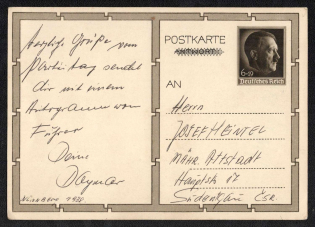 Herzliche Grüße vom
Parteitag sendet
Dir mit einem
Autogramm vom
Führer
Deine
Dagmar
NÜRNBERG 1938
POSTKARTE
ANTWORT
6+19
Deutsches Reich
AN
Herrn
JOSEF HEINTEL
MÄHR. Altstadt
Hauptstr. 17
Sudetengau ČSR.